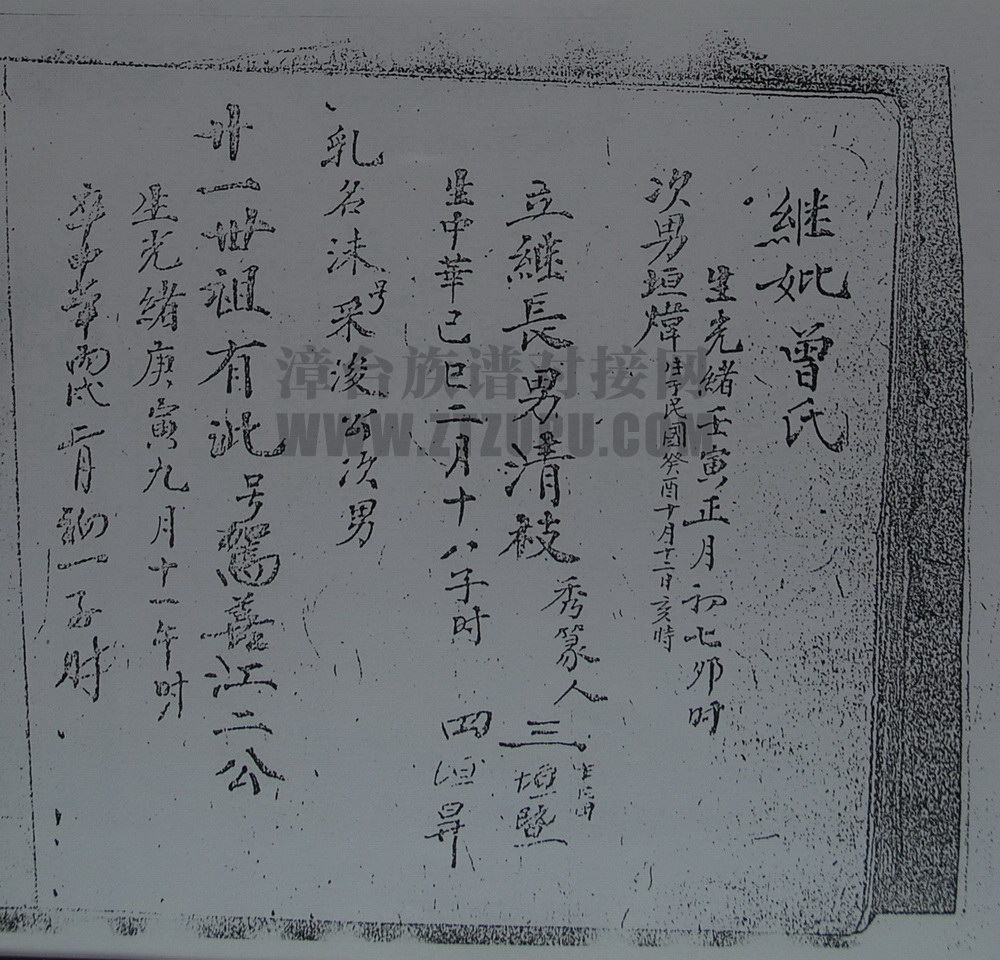 継妣曾氏
生光緒壬寅正月初七卯时
次男垣煒生于民國癸酉十月十二日亥時
立継長男清枝 秀篆人 三垣暨
生中華己巳二月十八子时 四垣昇
乳名沫号采浚公次男
廿一世祖有此号 善江二公
生光緒庚寅九月十一午时
卒中華丙戌二月初一子时
漳台族谱对接网
WWW.ZTZUPU.COM